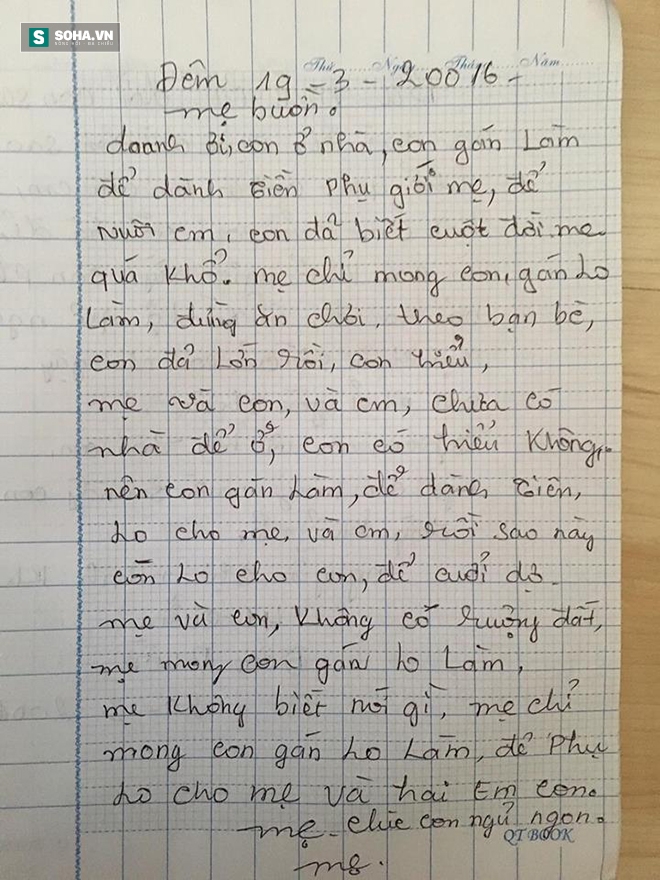 SOHA.VN
Thứ Ngày Tháng Năm
Đêm 19 - 3 - 20016 -
mẹ buồn.
daanh ơi, con ở nhà, con gán Làm
để dành tiền phụ giối mẹ, để
nuôi em, con đã biết cuột đời mẹ
quá khổ. mẹ chỉ mong con, gán Lo
Làm, đừng ăn chơi, theo bạn bè,
con đã Lớn rồi, con hiểu,
mẹ và con, và em, chưa có
nhà để ở, con có hiểu không,
nên con gán Làm, để dành tiền,
Lo cho mẹ, và em, rồi sao này
còn Lo cho con, để cưới dợ.
mẹ và con, không có rượng đất,
mẹ mong con gán Lo Làm,
mẹ không biết nói gì, mẹ chỉ
mong con gán Lo Làm, để phụ
Lo cho mẹ và hai Em con.
mẹ chúc con ngủ ngon.
QT BOOK
mẹ.